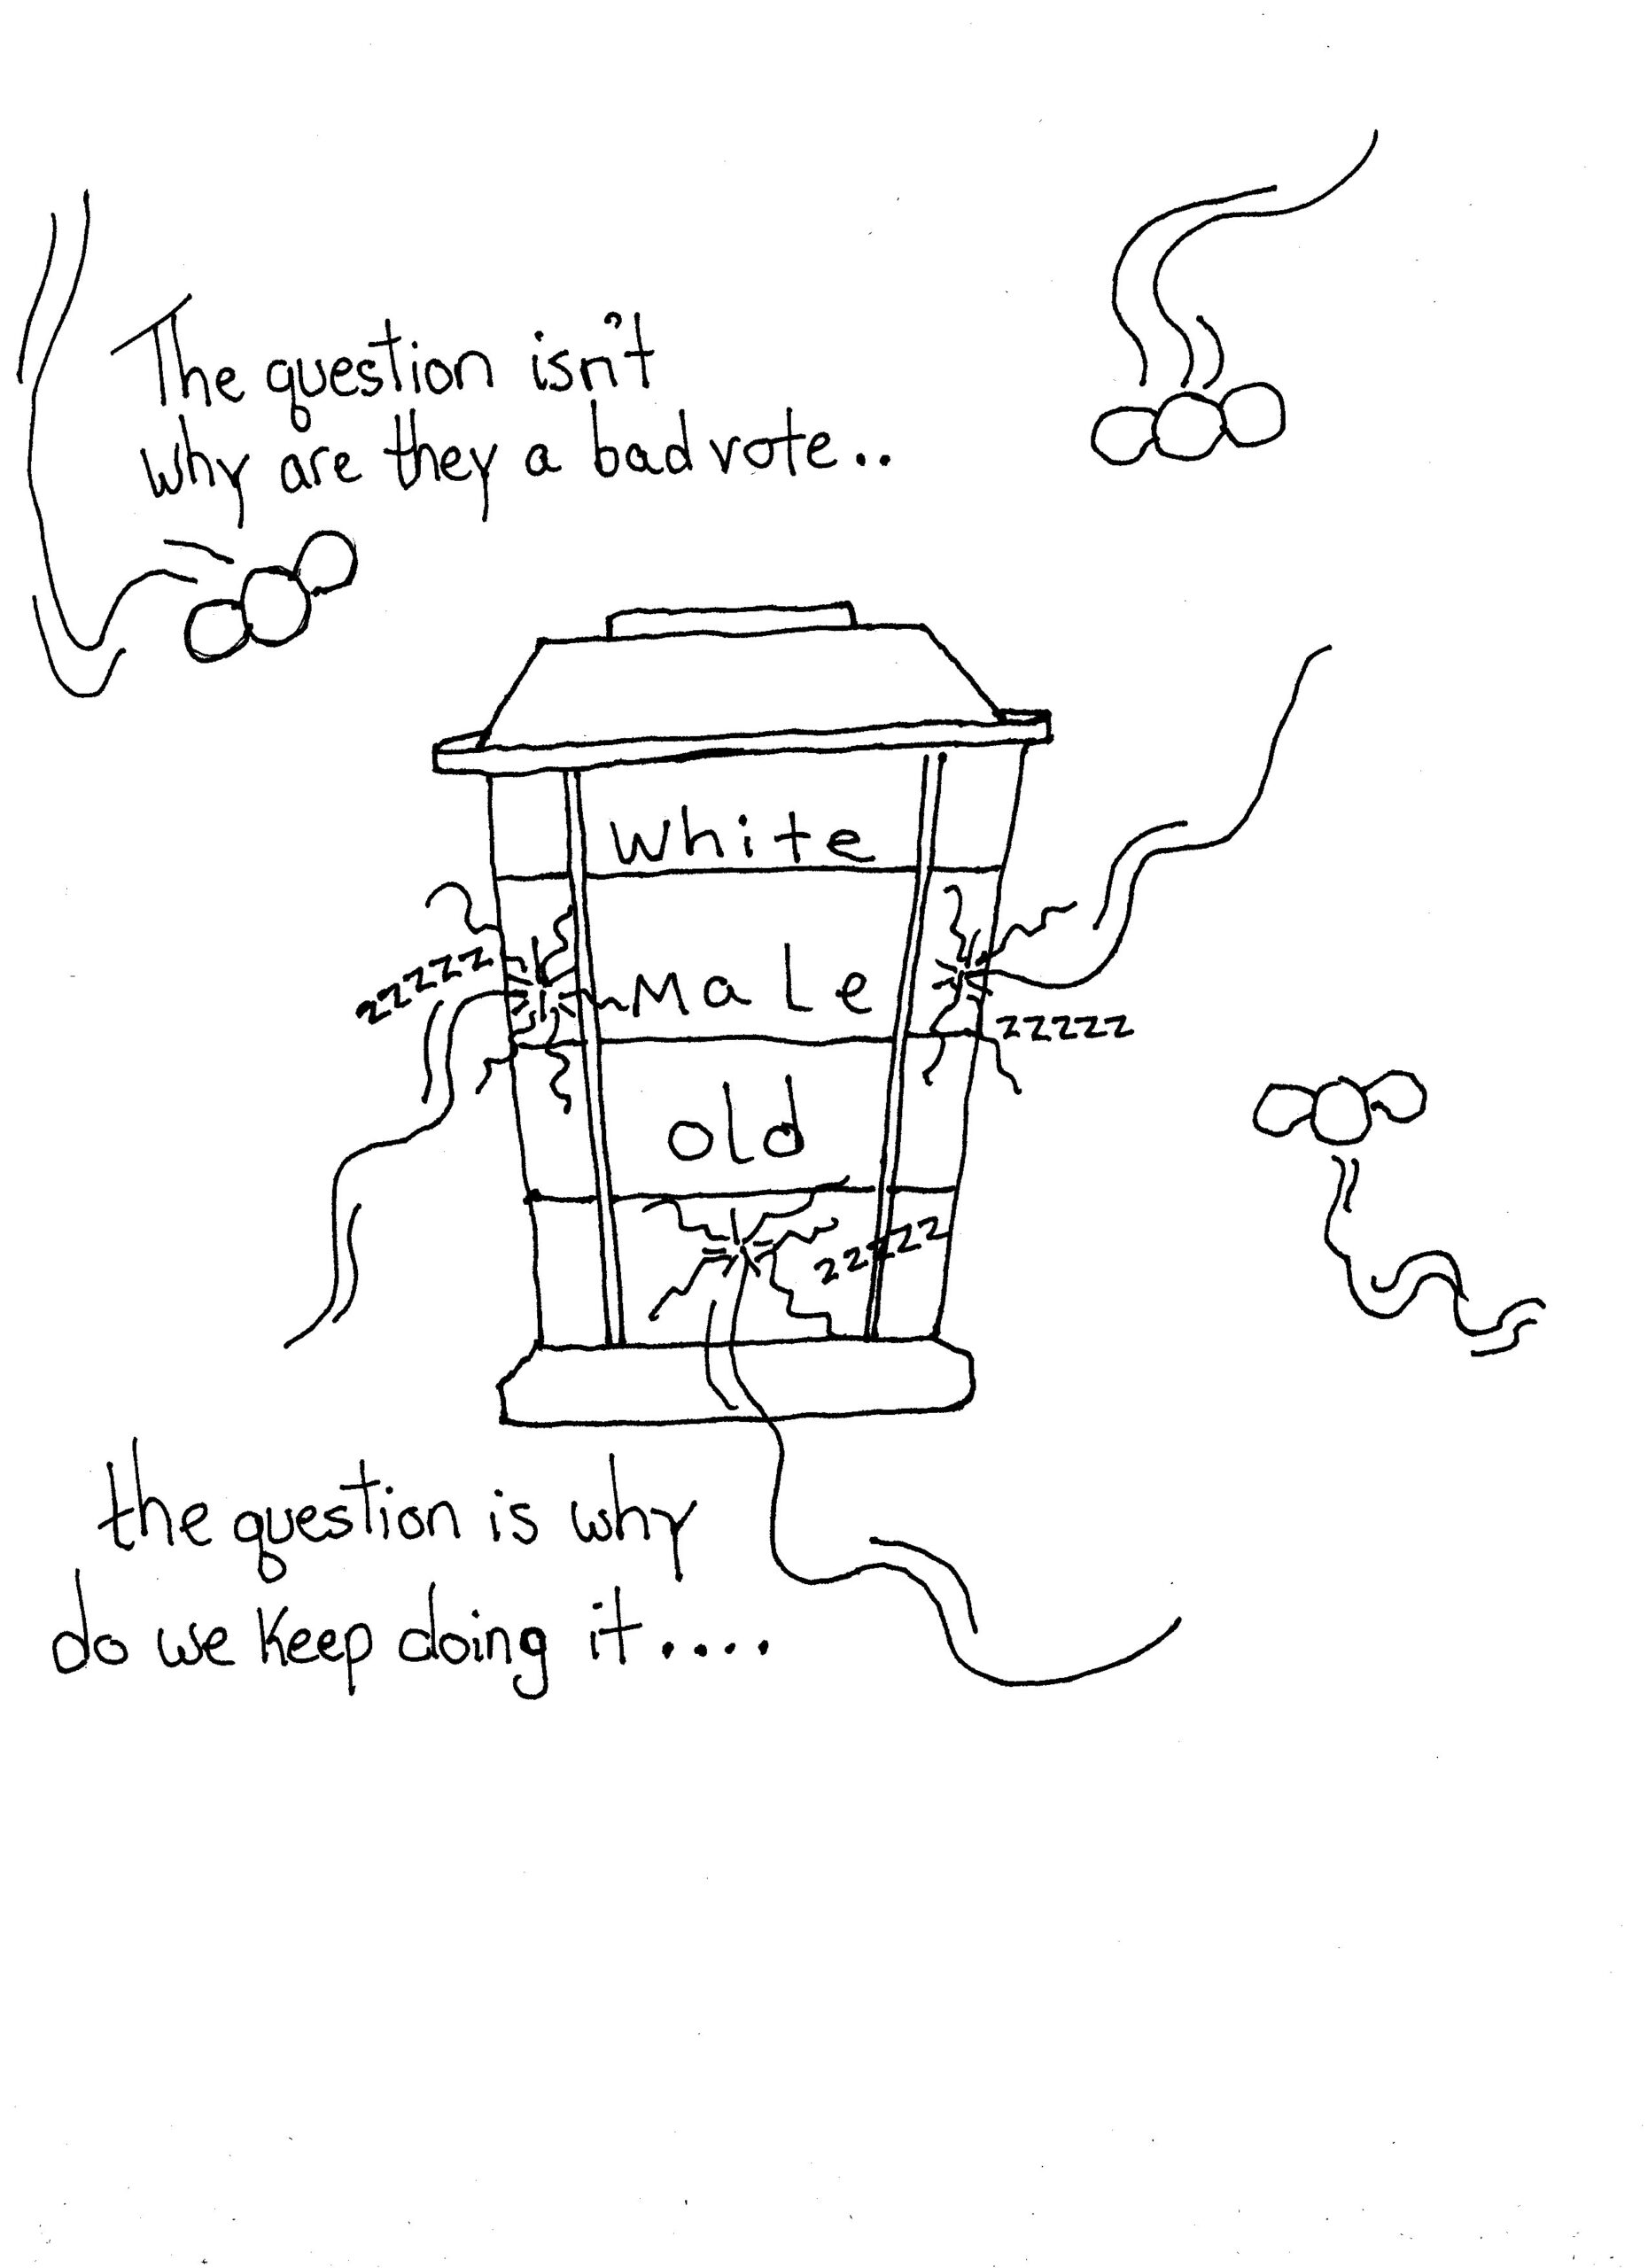 The question isn't
why are they a bad vote..
White
zzzzz
Male
zzzzz
old
zzzzz
the question is why
do we keep doing it....